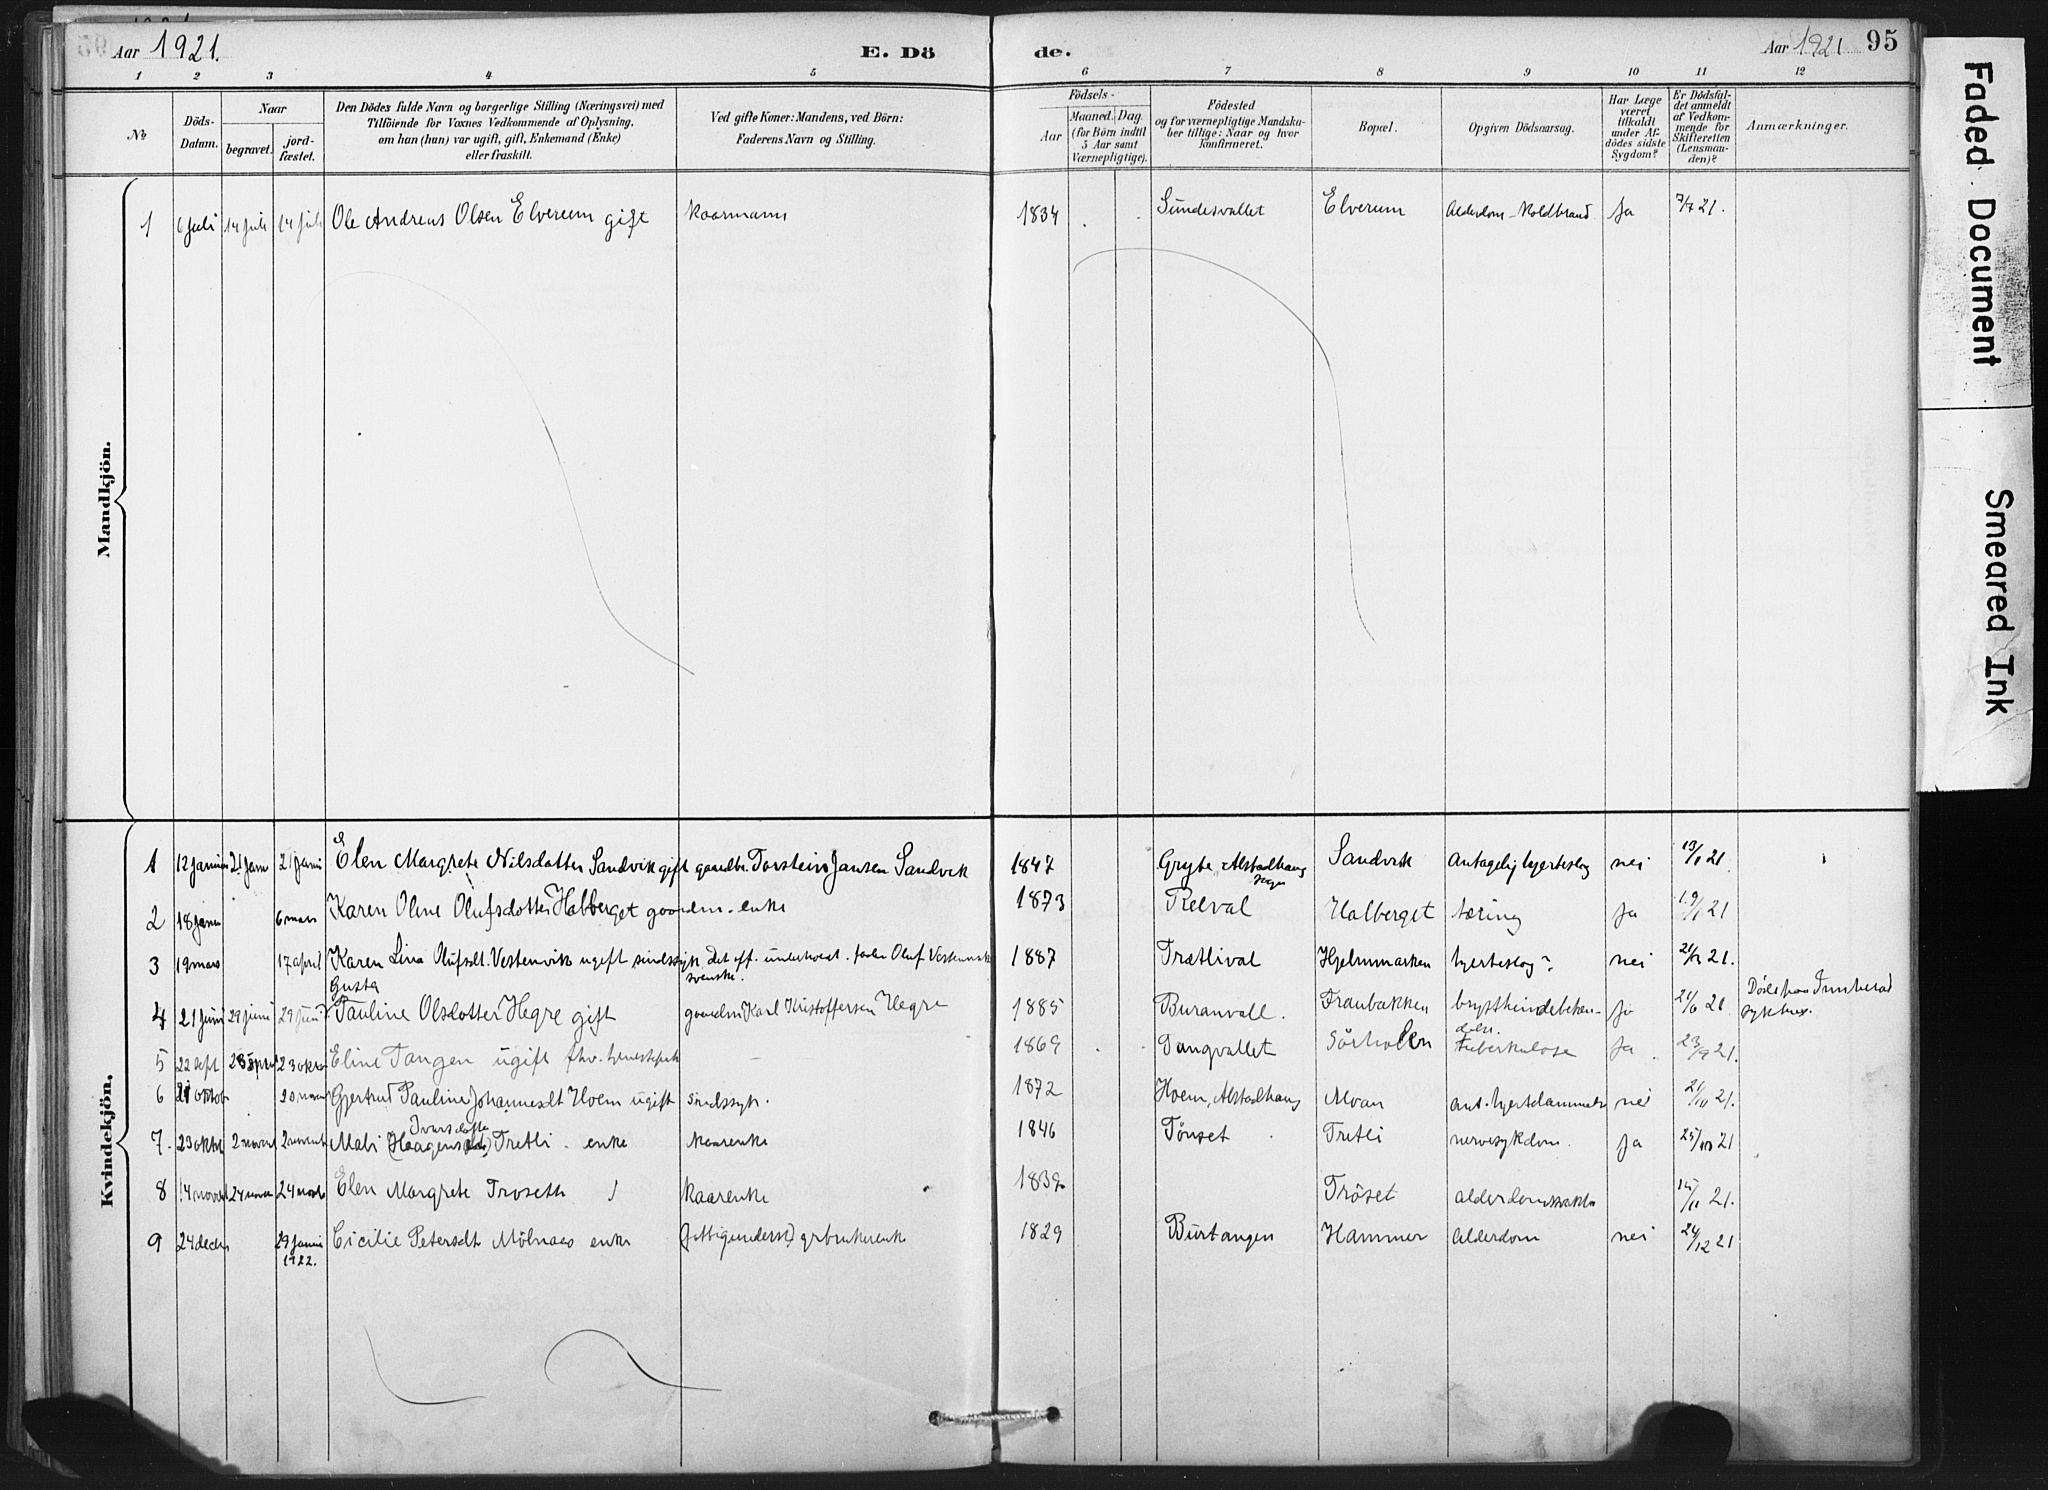 Aar 1921. E. Dö
de. Aar 1921 95
1 2 3 4 5
6 7 8 9 10 11 12
№ Döds-Datum. Naar begravet. jordfæstet. Den Dödes fulde Navn og borgerlige Stilling (Næringsvei) med Tilföiende for Voxnes Vedkommende af Oplysning, om han (han) var ugift, gift, Enkemand (Enke) eller fraskilt. Ved gifte Koner: Mandens, ved Börn: Faderens Navn og Stilling.
Födsels- Aar Maaned. Dag. (for Börn indtil 5 Aar samt Værnepligtige). Födested og for værnepligtige Mandskaber tillige: Naar og hvor konfirmeret. Bopæl. Opgiven Dödsaarsag. Har Læge været tilkaldt under Afdödes sidste Sygdom? Er Dödsfaldet anmeldt af Vedkommende for Skifteretten (Lensmanden)? Anmærkninger.
Mandkjön.
1 6 juli 14 juli 14 juli Ole Andreas Olsen Elverum gift kaarmann 1834 Sundesvallet Elverum Alderdom - Koldbrand Ja 7/7 21.
Kvindekjön.
1 12 januar 21 jan 21 janu Elen Margrete Nilsdatter Sandvik gift gaardbr. Torstein Jansen Sandvik 1847 Grybe, Alstadhaug Sandvik Antagelig hjerteslag nei 13/1 21.
2 18 janu 6 mars Karen Oline Olufsdotter Halberget gaardm. enke 1873 Reelval Halberget tæring Ja 19/1 21
3 19 mars 17 april Karen Lina Olufsdt. Vestervik ugift sindssyk, Det off. underhold. fader Oluf svenske. 1887 Trætlival Hjelmmarken hjerteslag? nei 21/3 21.
4 21 juni 29 juni 29 juni Gusta Pauline Olsdotter Hegre gift gaardm Karl Kristoffersen Hegre 1885 Buranvall. Fraubakken Ja 21/6 21 Döde paa Innherad sykhus.
5 22 sept 23 okto Eline Tangen ugift fhv. tjenestepike 1869 Tangvallet Sörholen Tuberkulose Ja 23/9 21.
6 21 oktob 20 novem Gjertrud Pauline Johannesdt Hoem ugift sindssyk. 1872 Hoem, Alstadhaug Moan ant. hjertelammelse nei 21/10 21.
7. 23 oktbr 2 novemb 2 novemb Mali Ivarsdotter (Haagensdt) Tretli enke kaarenke 1846 Tönset Tretli nervesykdom. Ja 25/10 21
8 14 novbr 24 novbr 24 novbr Elen Margrete Troseth kaarenke 1839 Tröset alderdomssvakhet 15/11 21.
9 24 decbr 29 janu 1922. Cicilie Petersdt Mölnaas enke (fattigunderst.) grbrukerenke 1829 Burtangen Hammer Alderdom nei 24/12 21
Faded Document
Smeared Ink